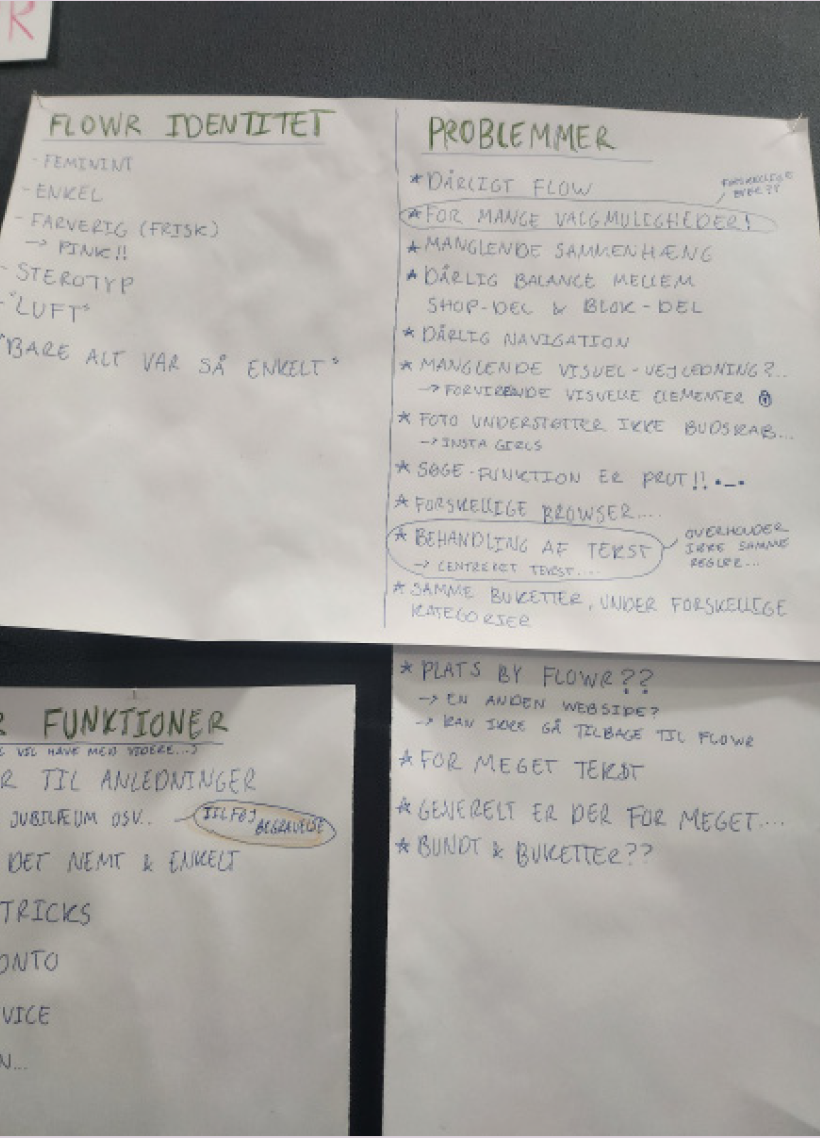 R
FLOWR IDENTITET
- FEMININT
- ENKEL
- FARVERIG (FRISK)
→ PINK!!
- STEROTYP
- "LUFT"
"BARE ALT VAR SÅ ENKELT"
PROBLEMMER
* DÅRLIGT FLOW
FORSKELLIGE
BYER??
* FOR MANGE VALGMULIGHEDER!
* MANGLENDE SAMMENHÆNG
* DÅRLIG BALANCE MELLEM
SHOP-DEL & BLOK-DEL
* DÅRLIG NAVIGATION
* MANGLENDE VISUEL-VEJLEDNING?..
→ FORVIRENDE VISUELLE ELEMENTER
* FOTO UNDERSTØTTER IKKE BUDSKAB...
→ INSTA GIRLS
* SØGE-FUNKTION ER PRUT!! •_•
* FORSKELLIGE BROWSER....
* BEHANDLING AF TEKST
→ CENTRERET TEKST....
OVERHOLDER
IKKE SAMME
REGLER...
* SAMME BUKETTER, UNDER FORSKELLIGE
KATEGORIER
* PLATS BY FLOWR??
→ EN ANDEN WEBSIDE?
→ KAN IKKE GÅ TILBAGE TIL FLOWR
* FOR MEGET TEKST
* GENERELT ER DER FOR MEGET...
* BUNDT & BUKETTER??
R FUNKTIONER
VIL HAVE MED VIDERE...)
R TIL ANLEDNINGER
JUBILÆUM OSV..
TILFØJ
BEGRAVELSE
DET NEMT & ENKELT
TRICKS
ONTO
VICE
N...